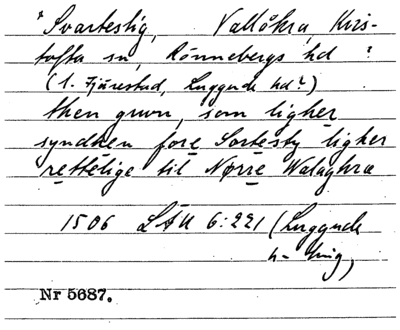 *Svartestig, Vallåkra, Kvis-
tofta sn, Rönnebergs hd ?
(l. Fjärestad, Luggude hd?)
then grwn, som ligher
syndhen fore Sortesty ligher
rettelige til Nørre Walaghra
1506 LÄU 6:221 (Luggude
h- ting)
Nr 5687.